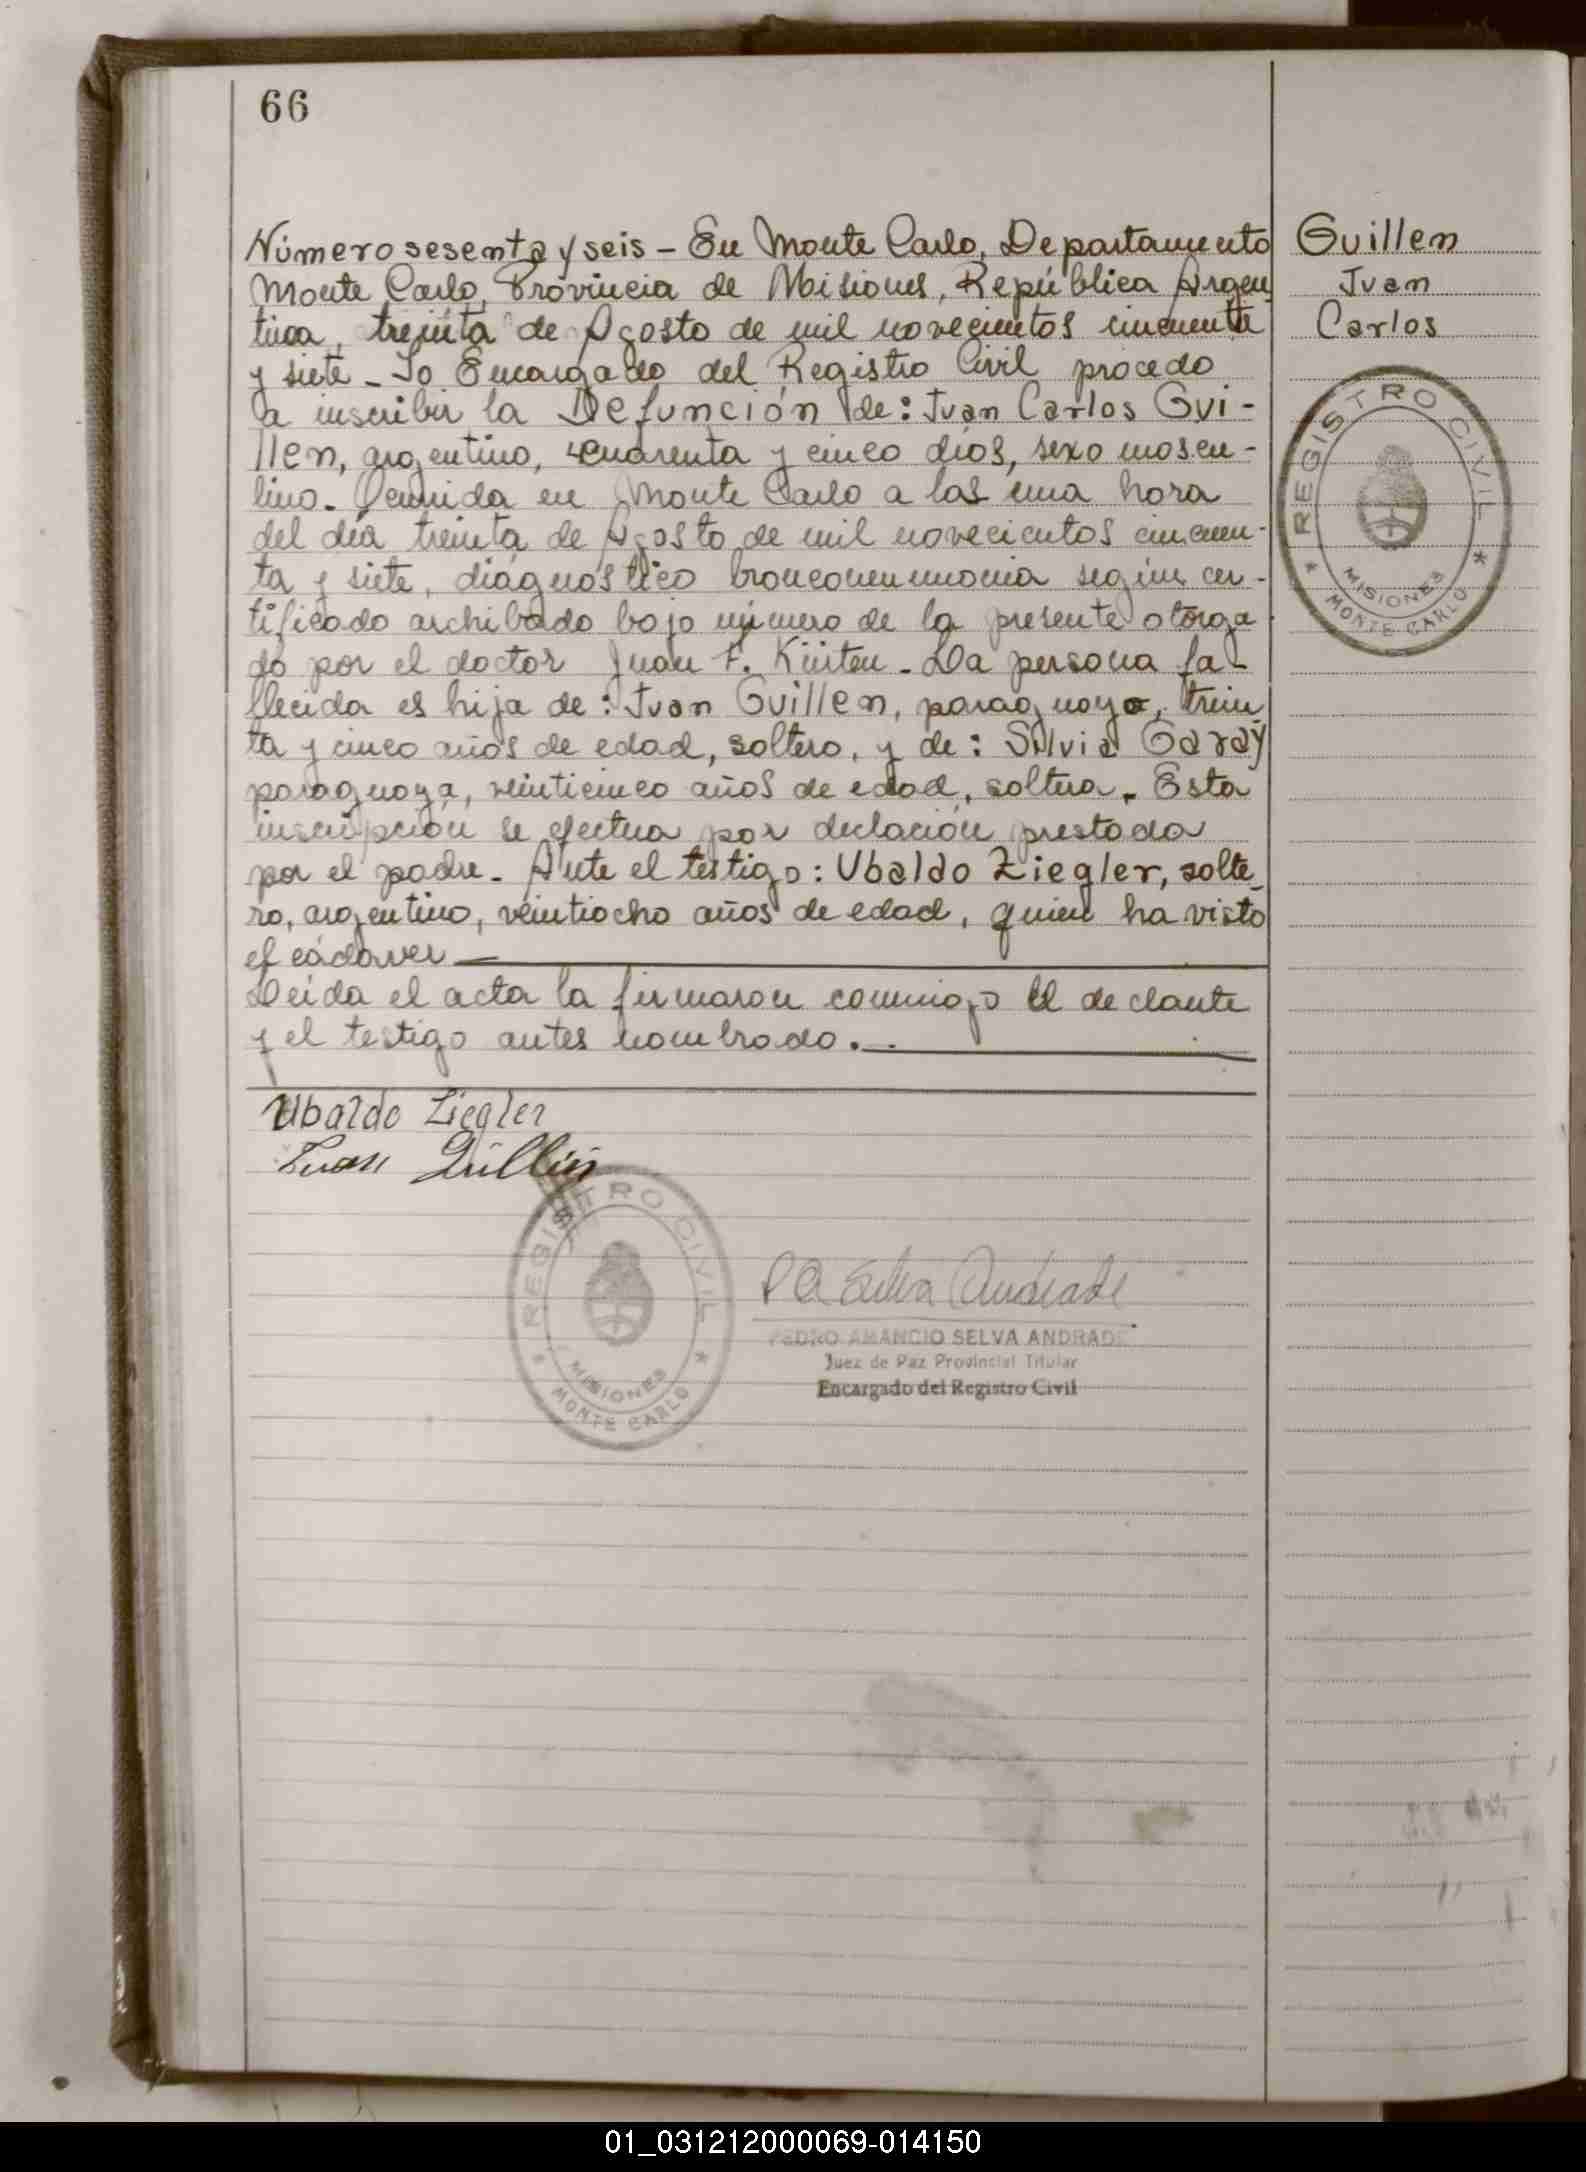 66
Número sesenta y seis - En Monte Carlo, Departamento
Monte Carlo, Provincia de Misiones, República Argen
tina, treinta de Agosto de mil novecientos cincuenta
y siete - Yo Encargado del Registro Civil procedo
a inscribir la Defunción de: Juan Carlos Gui-
llen, argentino, cuarenta y cinco días, sexo mascu-
lino. Ocurrida en Monte Carlo a las una hora
del día treinta de Agosto de mil novecientos cincuen-
ta y siete, diagnóstico bronconeumonia según cer-
tificado archibado bajo número de la presente otorga
do por el doctor Juan F. Kürten - La persona fa-
llecida es hija de: Juan Guillen, paraguayo, trein
ta y cinco años de edad, soltero, y de: Silvia Garay
paraguaya, veinticinco años de edad, soltera. Esta
inscripción se efectua por declación prestada
por el padre. Ante el testigo: Ubaldo Ziegler, solte
ro, argentino, veintiocho años de edad, quien ha visto
el cádaver
Leida el acta la firmaron conmigo el declante
y el testigo antes nombrado.
Guillen
Juan
Carlos
REGISTRO CIVIL
MISIONES
* MONTE CARLO *
Ubaldo Ziegler
Juan Guillén
REGISTRO CIVIL
MISIONES
* MONTE CARLO *
P A Selva Andrade
PEDRO AMANCIO SELVA ANDRADE
Juez de Paz Provincial Titular
Encargado del Registro Civil
01_031212000069-014150